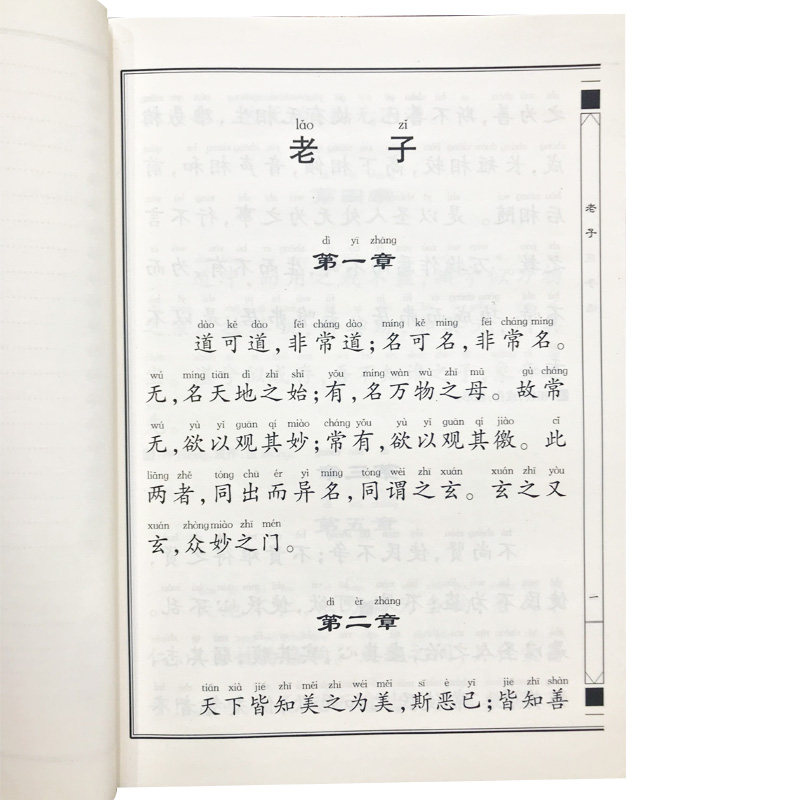 lǎo zǐ
老子
dì yī zhāng
第一章
dào kě dào fēi cháng dào míng kě míng fēi cháng míng
道可道，非常道；名可名，非常名。
wú míng tiān dì zhī shǐ yǒu míng wàn wù zhī mǔ gù cháng
无，名天地之始；有，名万物之母。故常
wú yù yǐ guān qí miào cháng yǒu yù yǐ guān qí jiào cǐ
无，欲以观其妙；常有，欲以观其徼。此
liǎng zhě tóng chū ér yì míng tóng wèi zhī xuán xuán zhī yòu
两者，同出而异名，同谓之玄。玄之又
xuán zhòng miào zhī mén
玄，众妙之门。
dì èr zhāng
第二章
tiān xià jiē zhī měi zhī wéi měi sī è yǐ jiē zhī shàn
天下皆知美之为美，斯恶已；皆知善
老子
一